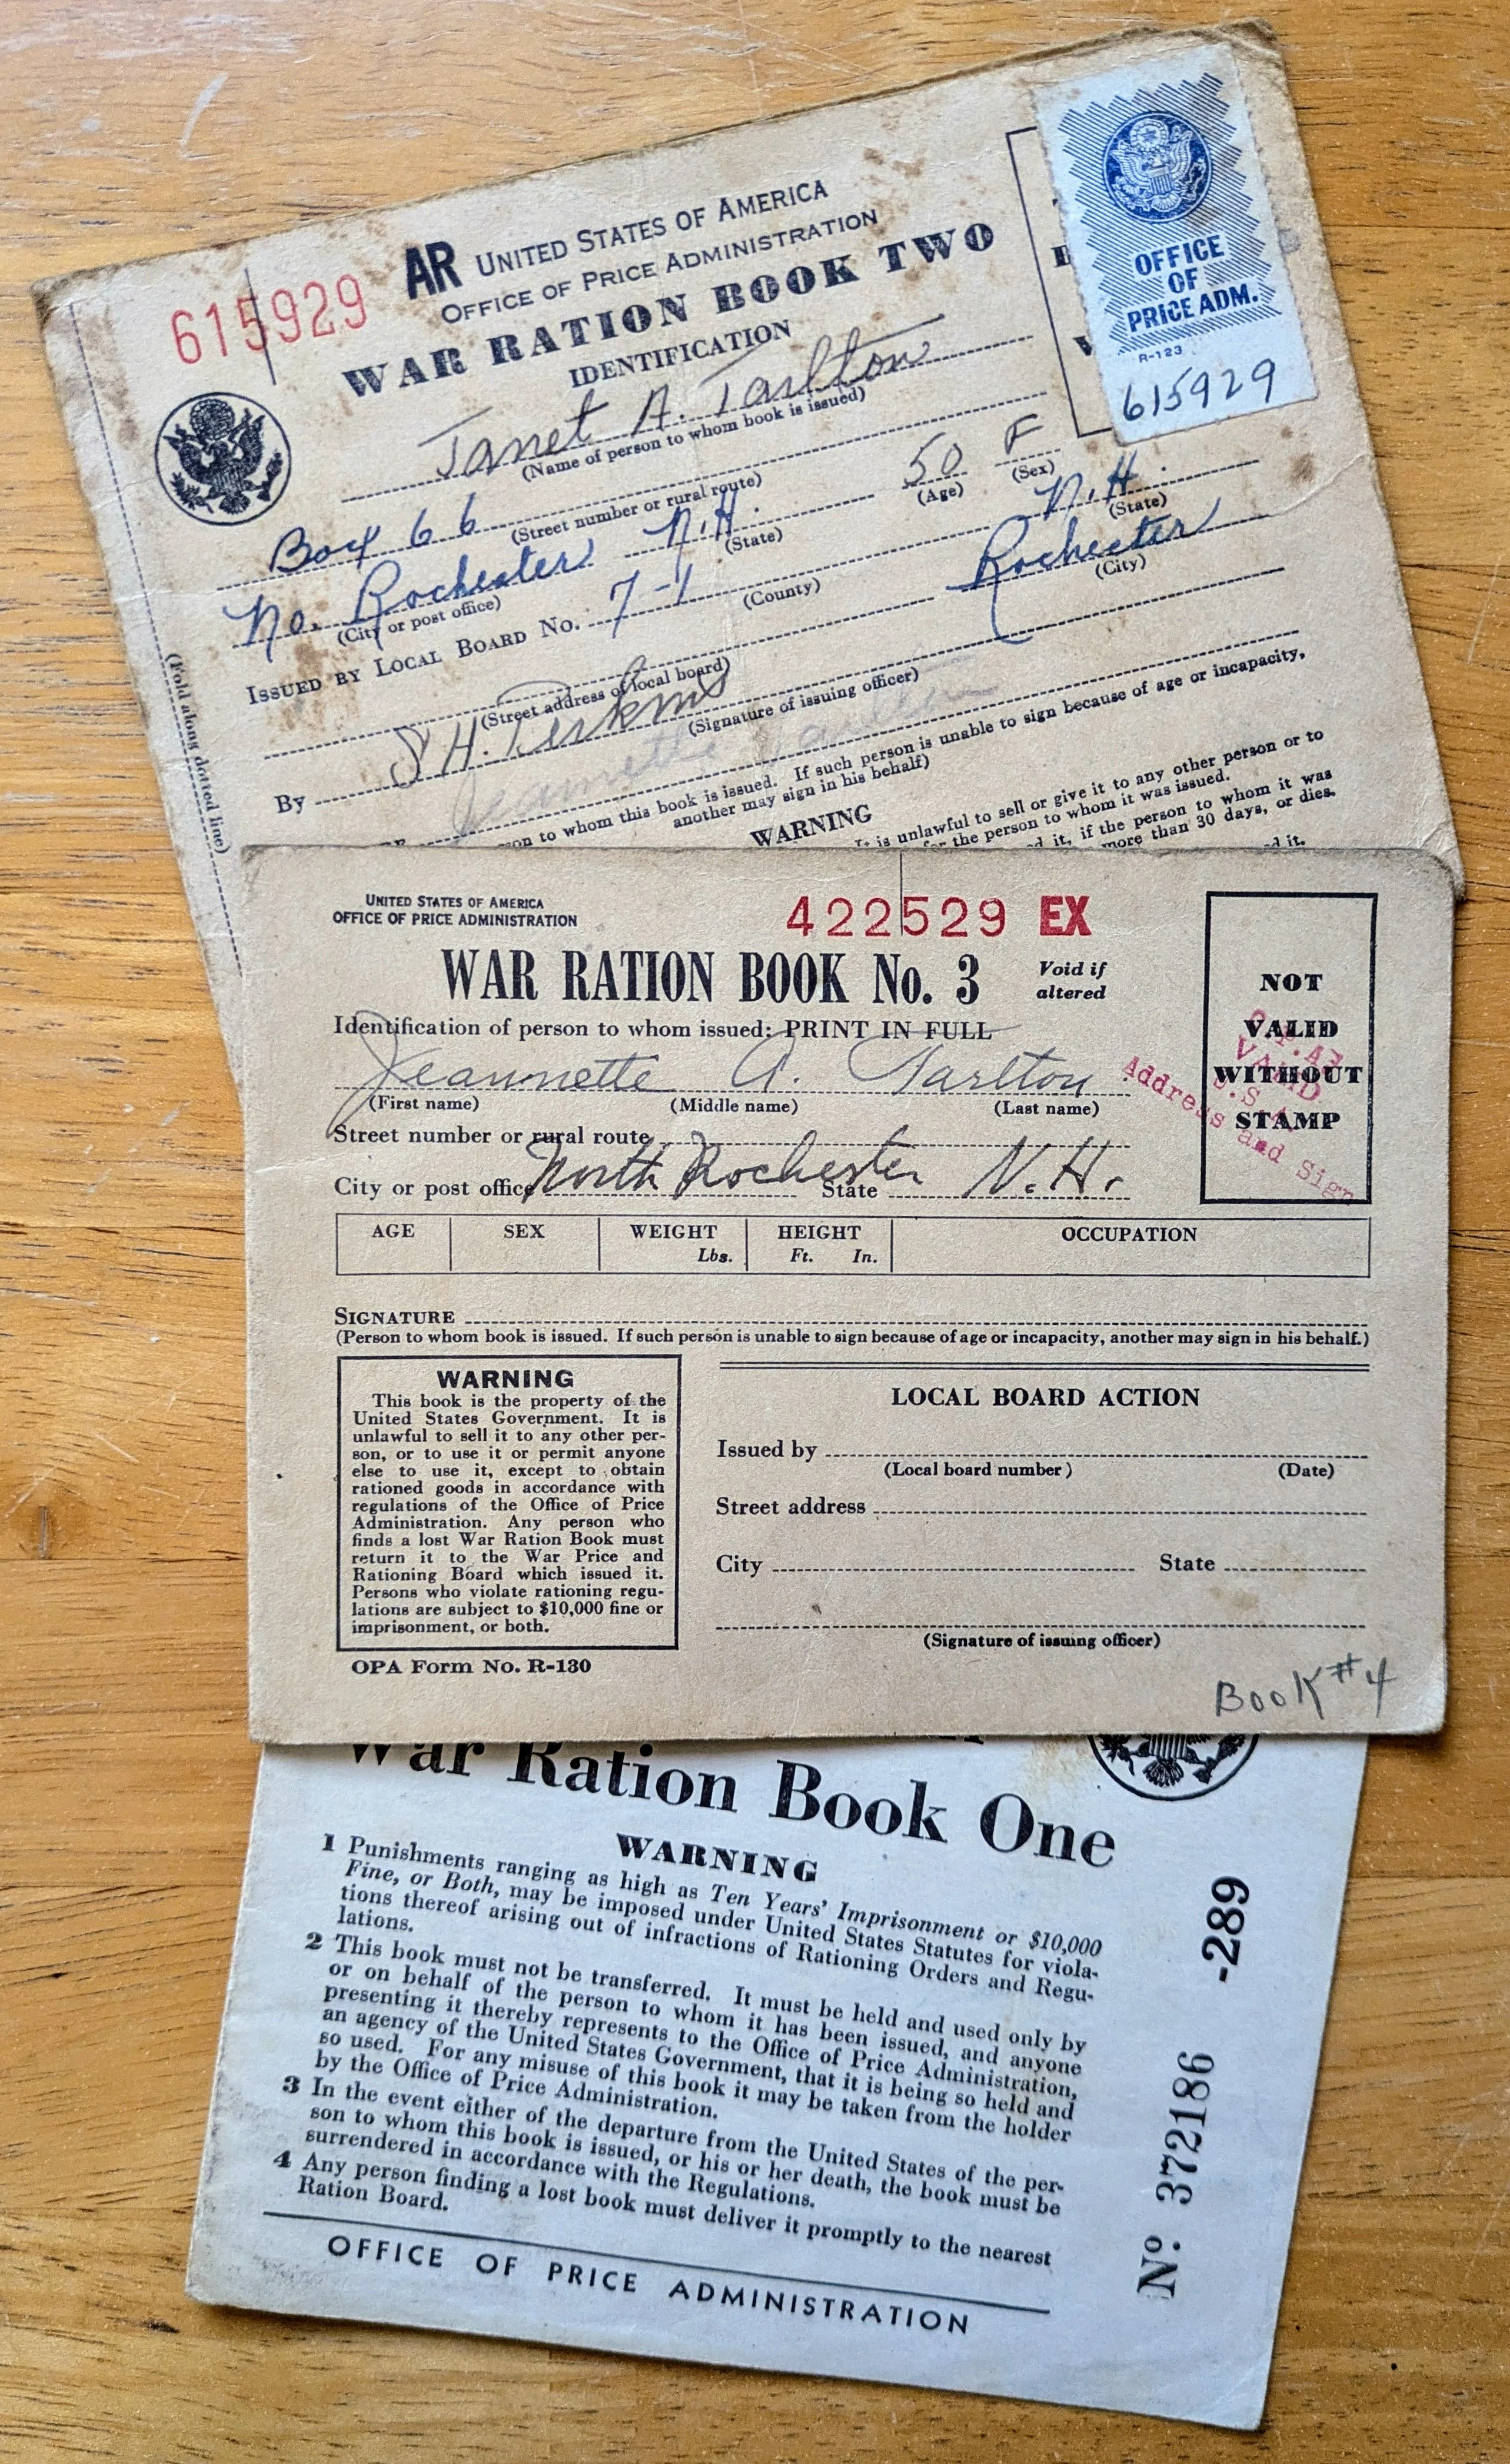 615929 AR UNITED STATES OF AMERICA
OFFICE OF PRICE ADMINISTRATION
WAR RATION BOOK TWO
IDENTIFICATION
OFFICE
OF
PRICE ADM.
R-123
615929
Janet A. Tarlton
(Name of person to whom book is issued)
Box 66 50 F
(Street number or rural route) (Age) (Sex)
No. Rochester N.H.
(City or post office) (State)
ISSUED BY LOCAL BOARD NO. 7-1 (County) N.H. (State)
Rochester
(Street address of local board) (City)
By S H. Perkins
(Signature of issuing officer)
Jeannette Tarlton
on to whom this book is issued. If such person is unable to sign because of age or incapacity,
another may sign in his behalf)
WARNING
It is unlawful to sell or give it to any other person or to
for the person to whom it was issued.
d it, if the person to whom it was
more than 30 days, or dies.
d it.
(Fold along dotted line)
UNITED STATES OF AMERICA
OFFICE OF PRICE ADMINISTRATION
422529 EX
WAR RATION BOOK No. 3
Void if
altered
Identification of person to whom issued: PRINT IN FULL
Jeannette A. Tarlton
(First name) (Middle name) (Last name)
Street number or rural route
City or post office North Rochester State N.H.
NOT
VALID
WITHOUT
STAMP
VALID
Address and Sign
AGE SEX WEIGHT HEIGHT OCCUPATION
Lbs. Ft. In.
SIGNATURE
(Person to whom book is issued. If such person is unable to sign because of age or incapacity, another may sign in his behalf.)
WARNING
This book is the property of the
United States Government. It is
unlawful to sell it to any other per-
son, or to use it or permit anyone
else to use it, except to obtain
rationed goods in accordance with
regulations of the Office of Price
Administration. Any person who
finds a lost War Ration Book must
return it to the War Price and
Rationing Board which issued it.
Persons who violate rationing regu-
lations are subject to $10,000 fine or
imprisonment, or both.
OPA Form No. R-130
LOCAL BOARD ACTION
Issued by
(Local board number) (Date)
Street address
City State
(Signature of issuing officer)
Book #4
War Ration Book One
WARNING
1 Punishments ranging as high as Ten Years' Imprisonment or $10,000
Fine, or Both, may be imposed under United States Statutes for viola-
tions thereof arising out of infractions of Rationing Orders and Regu-
lations.
2 This book must not be transferred. It must be held and used only by
or on behalf of the person to whom it has been issued, and anyone
presenting it thereby represents to the Office of Price Administration,
an agency of the United States Government, that it is being so held and
so used. For any misuse of this book it may be taken from the holder
by the Office of Price Administration.
3 In the event either of the departure from the United States of the per-
son to whom this book is issued, or his or her death, the book must be
surrendered in accordance with the Regulations.
4 Any person finding a lost book must deliver it promptly to the nearest
Ration Board.
OFFICE OF PRICE ADMINISTRATION
No. 372186 -289